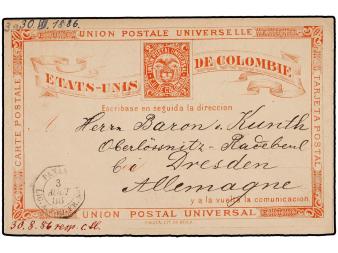 30. III. 1886.
UNION POSTALE UNIVERSELLE
CARTE POSTALE
TARJETA POSTAL
ETATS-UNIS DE COLOMBIE
Escribase en seguida la direccion
Herrn Baron v. Kunth
Oberlössnitz - Radebeul
bei Dresden
Allemagne
y a la vuelta la comunicacion
3
AOUT
86
UNION POSTAL UNIVERSAL
30.8.86 resp.